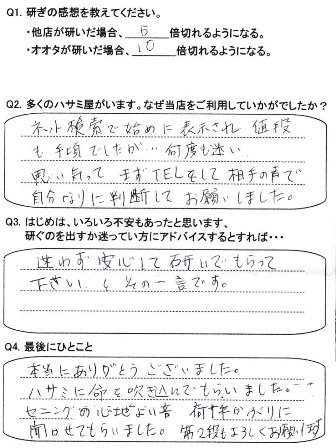 Q1. 研ぎの感想を教えてください。
・他店が研いだ場合、 5 倍切れるようになる。
・オオタが研いだ場合、 10 倍切れるようになる。
Q2. 多くのハサミ屋がいます。なぜ当店をご利用していかがでしたか?
ネット検索で始めに表示され 値段
も手頃でしたが… 何度も迷い
思い切って まずTELをして 相手の声で
自分なりに判断して お願いしました。
Q3. はじめは、いろいろ不安もあったと思います、
研ぐのを出すか迷ってい方にアドバイスするとすれば・・・
迷わず 安心して 研いでもらって
下さい と その一言です。
Q4. 最後にひとこと
本当にありがとうございました。
ハサミに命を吹き込んでもらいました。
セニングの心地よい音 何十年かぶりに
聞かせてもらいました。 第2段もよろしくお願いします